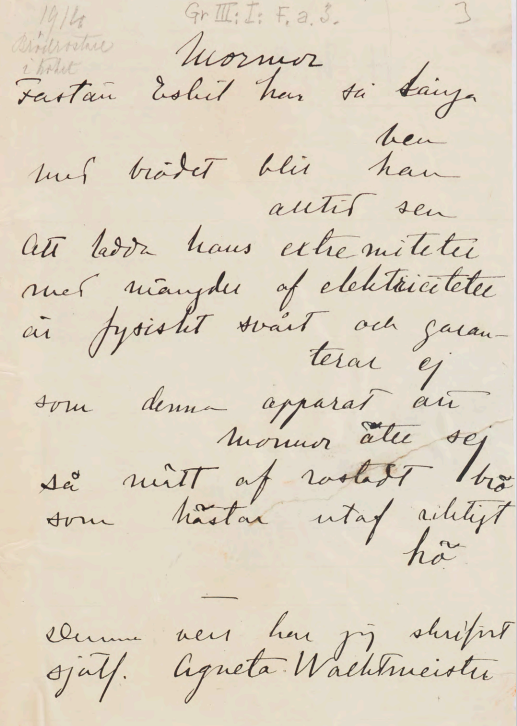 1914
Gr III: I: F. a. 3.
3
Brödrostare
i
Mormor
Fastän Eskil har så långa
ben
med brödet blir han
alltid sen
Att ladda hans extremiteter
med mängder af elektriciteter
är fysiskt svårt och garan-
terar ej
som denna apparat att
mormor äter sej
så mätt af rostadt brö
som hästar utaf riktigt
hö
Denna vers har jag skrifvit
själf. Agneta Wachtmeister